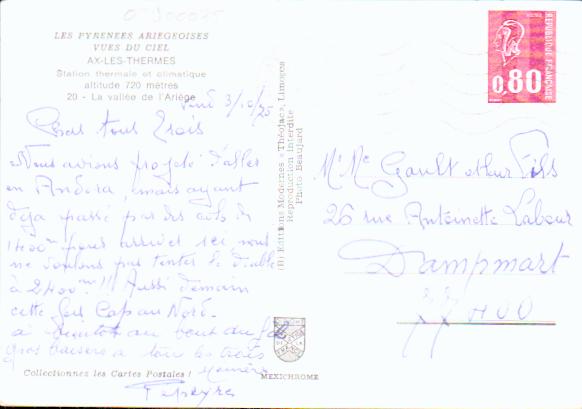 LES PYRENEES ARIEGEOISES
VUES DU CIEL
AX-LES-THERMES
Station thermale et climatique
altitude 720 mètres
20 - La vallée de l'Ariège
3/10/75
Nous avions projeté d'aller
en Andora, mais ayant
déja passé par des cols de
1400m pour arriver ici nous
ne voulons pas tenter le diable
à 2400m !!! Aussi demain
cette fois Cap au Nord.
A bientôt au bout du fil
gros baisers a tous les trois
Collectionnez les Cartes Postales !
(H) Editions Modernes « Théojac », Limoges
Reproduction interdite
Photo Beaujard
MEXICHROME
0,80
REPUBLIQUE FRANÇAISE
Mr Me Gault et leur Fils
26 rue Antoinette Labour
Dampmart
77400